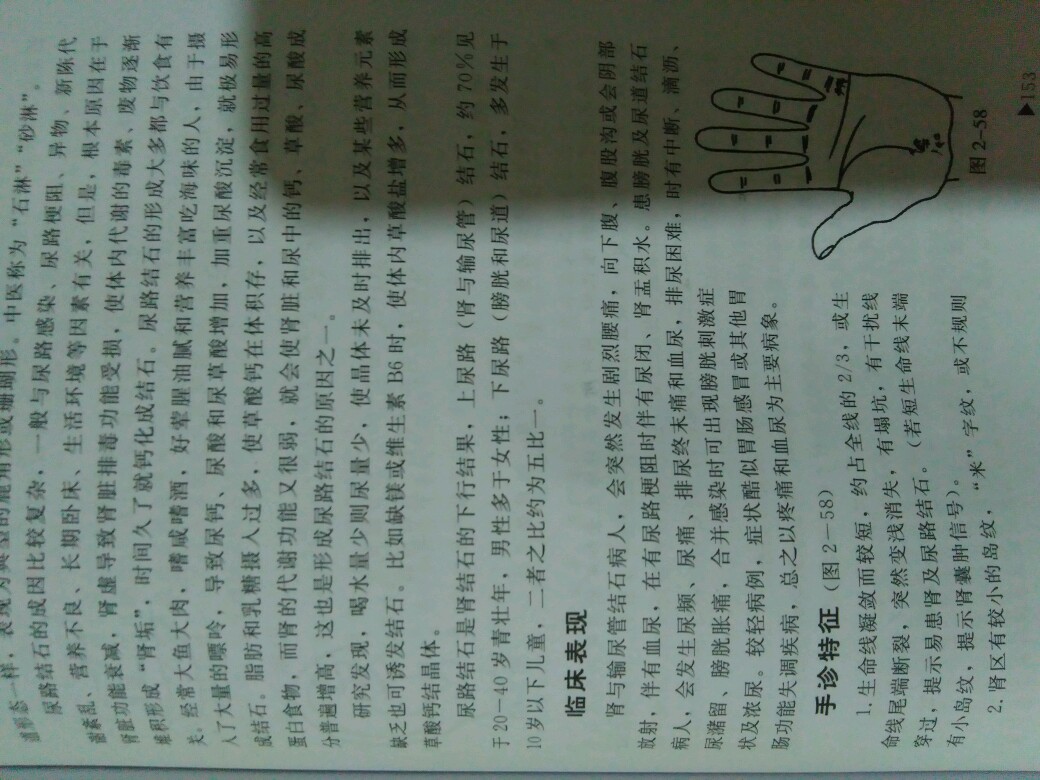 一样，表现为典型的鹿角形或珊瑚形。中医称为“石淋”“砂淋”。
尿路结石的成因比较复杂，一般与尿路感染、尿路梗阻、异物、新陈代
谢紊乱、营养不良、长期卧床、生活环境等因素有关，但是，根本原因在于
肾脏功能衰减，肾虚导致肾脏排毒功能受损，使体内代谢的毒素、废物逐渐
堆积形成“肾垢”，时间久了就钙化成结石。尿路结石的形成大多都与饮食有
关。
经常大鱼大肉，嗜咸嗜酒，好荤腥油腻和营养丰富吃海味的人，由于摄
入了大量的嘌呤，导致尿钙、尿酸和尿草酸增加，加重尿酸沉淀，就极易形
成结石。脂肪和乳糖摄入过多，使草酸钙在体积存，以及经常食用过量的高
蛋白食物，而肾的代谢功能又很弱，就会使肾脏和尿中的钙、草酸、尿酸成
分普遍增高，这也是形成尿路结石的原因之一。
研究发现，喝水量少则尿量少，使晶体未及时排出，以及某些营养元素
缺乏也可诱发结石。比如缺镁或维生素 B6 时，使体内草酸盐增多，从而形成
草酸钙结晶体。
尿路结石是肾结石的下行结果，上尿路（肾与输尿管）结石，约 70％见
于 20－40 岁青壮年，男性多于女性；下尿路（膀胱和尿道）结石，多发生于
10 岁以下儿童，二者之比约为五比一。
临床表现
肾与输尿管结石病人，会突然发生剧烈腰痛，向下腹、腹股沟或会阴部
放射，伴有血尿，在有尿路梗阻时伴有尿闭、肾盂积水。患膀胱及尿道结石
病人，会发生尿频、尿痛、排尿终末痛和血尿，排尿困难，时有中断、滴沥、
尿潴留、膀胱胀痛，合并感染时可出现膀胱刺激症
状及浓尿。较轻病例，症状酷似胃肠感冒或其他胃
肠功能失调疾病，总之以疼痛和血尿为主要病象。
手诊特征（图 2－58）
1. 生命线凝敛而较短，约占全线的 2/3，或生
命线尾端断裂，突然变浅消失，有塌坑，有干扰线
穿过，提示易患肾及尿路结石。（若短生命线末端
有小岛纹，提示肾囊肿信号）。
2. 肾区有较小的岛纹，“米”字纹，或不规则
图 2-58
▶153